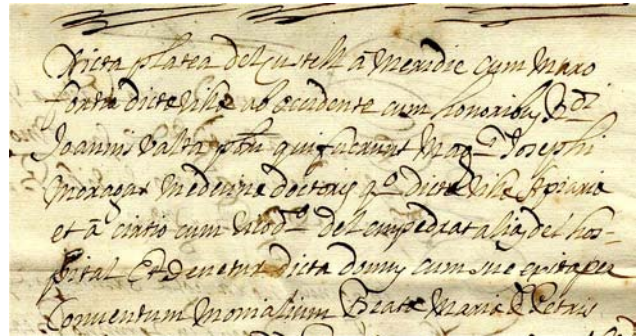 Dicta platea del Castell â Meridie cum Muro
fortio dictæ Villæ ab occidente cum honoribus Rdi
Joannis Valta pbri qui fuerunt Magci Josephi
Moragas Medicinæ doctoris qo dictæ Villæ Apiariæ
et â circio cum vico do del empedrat aliàs del hos-
pital Et denetur dicta domus cum sue exitu per
Conventum Monialium Beatæ Mariæ d Petris